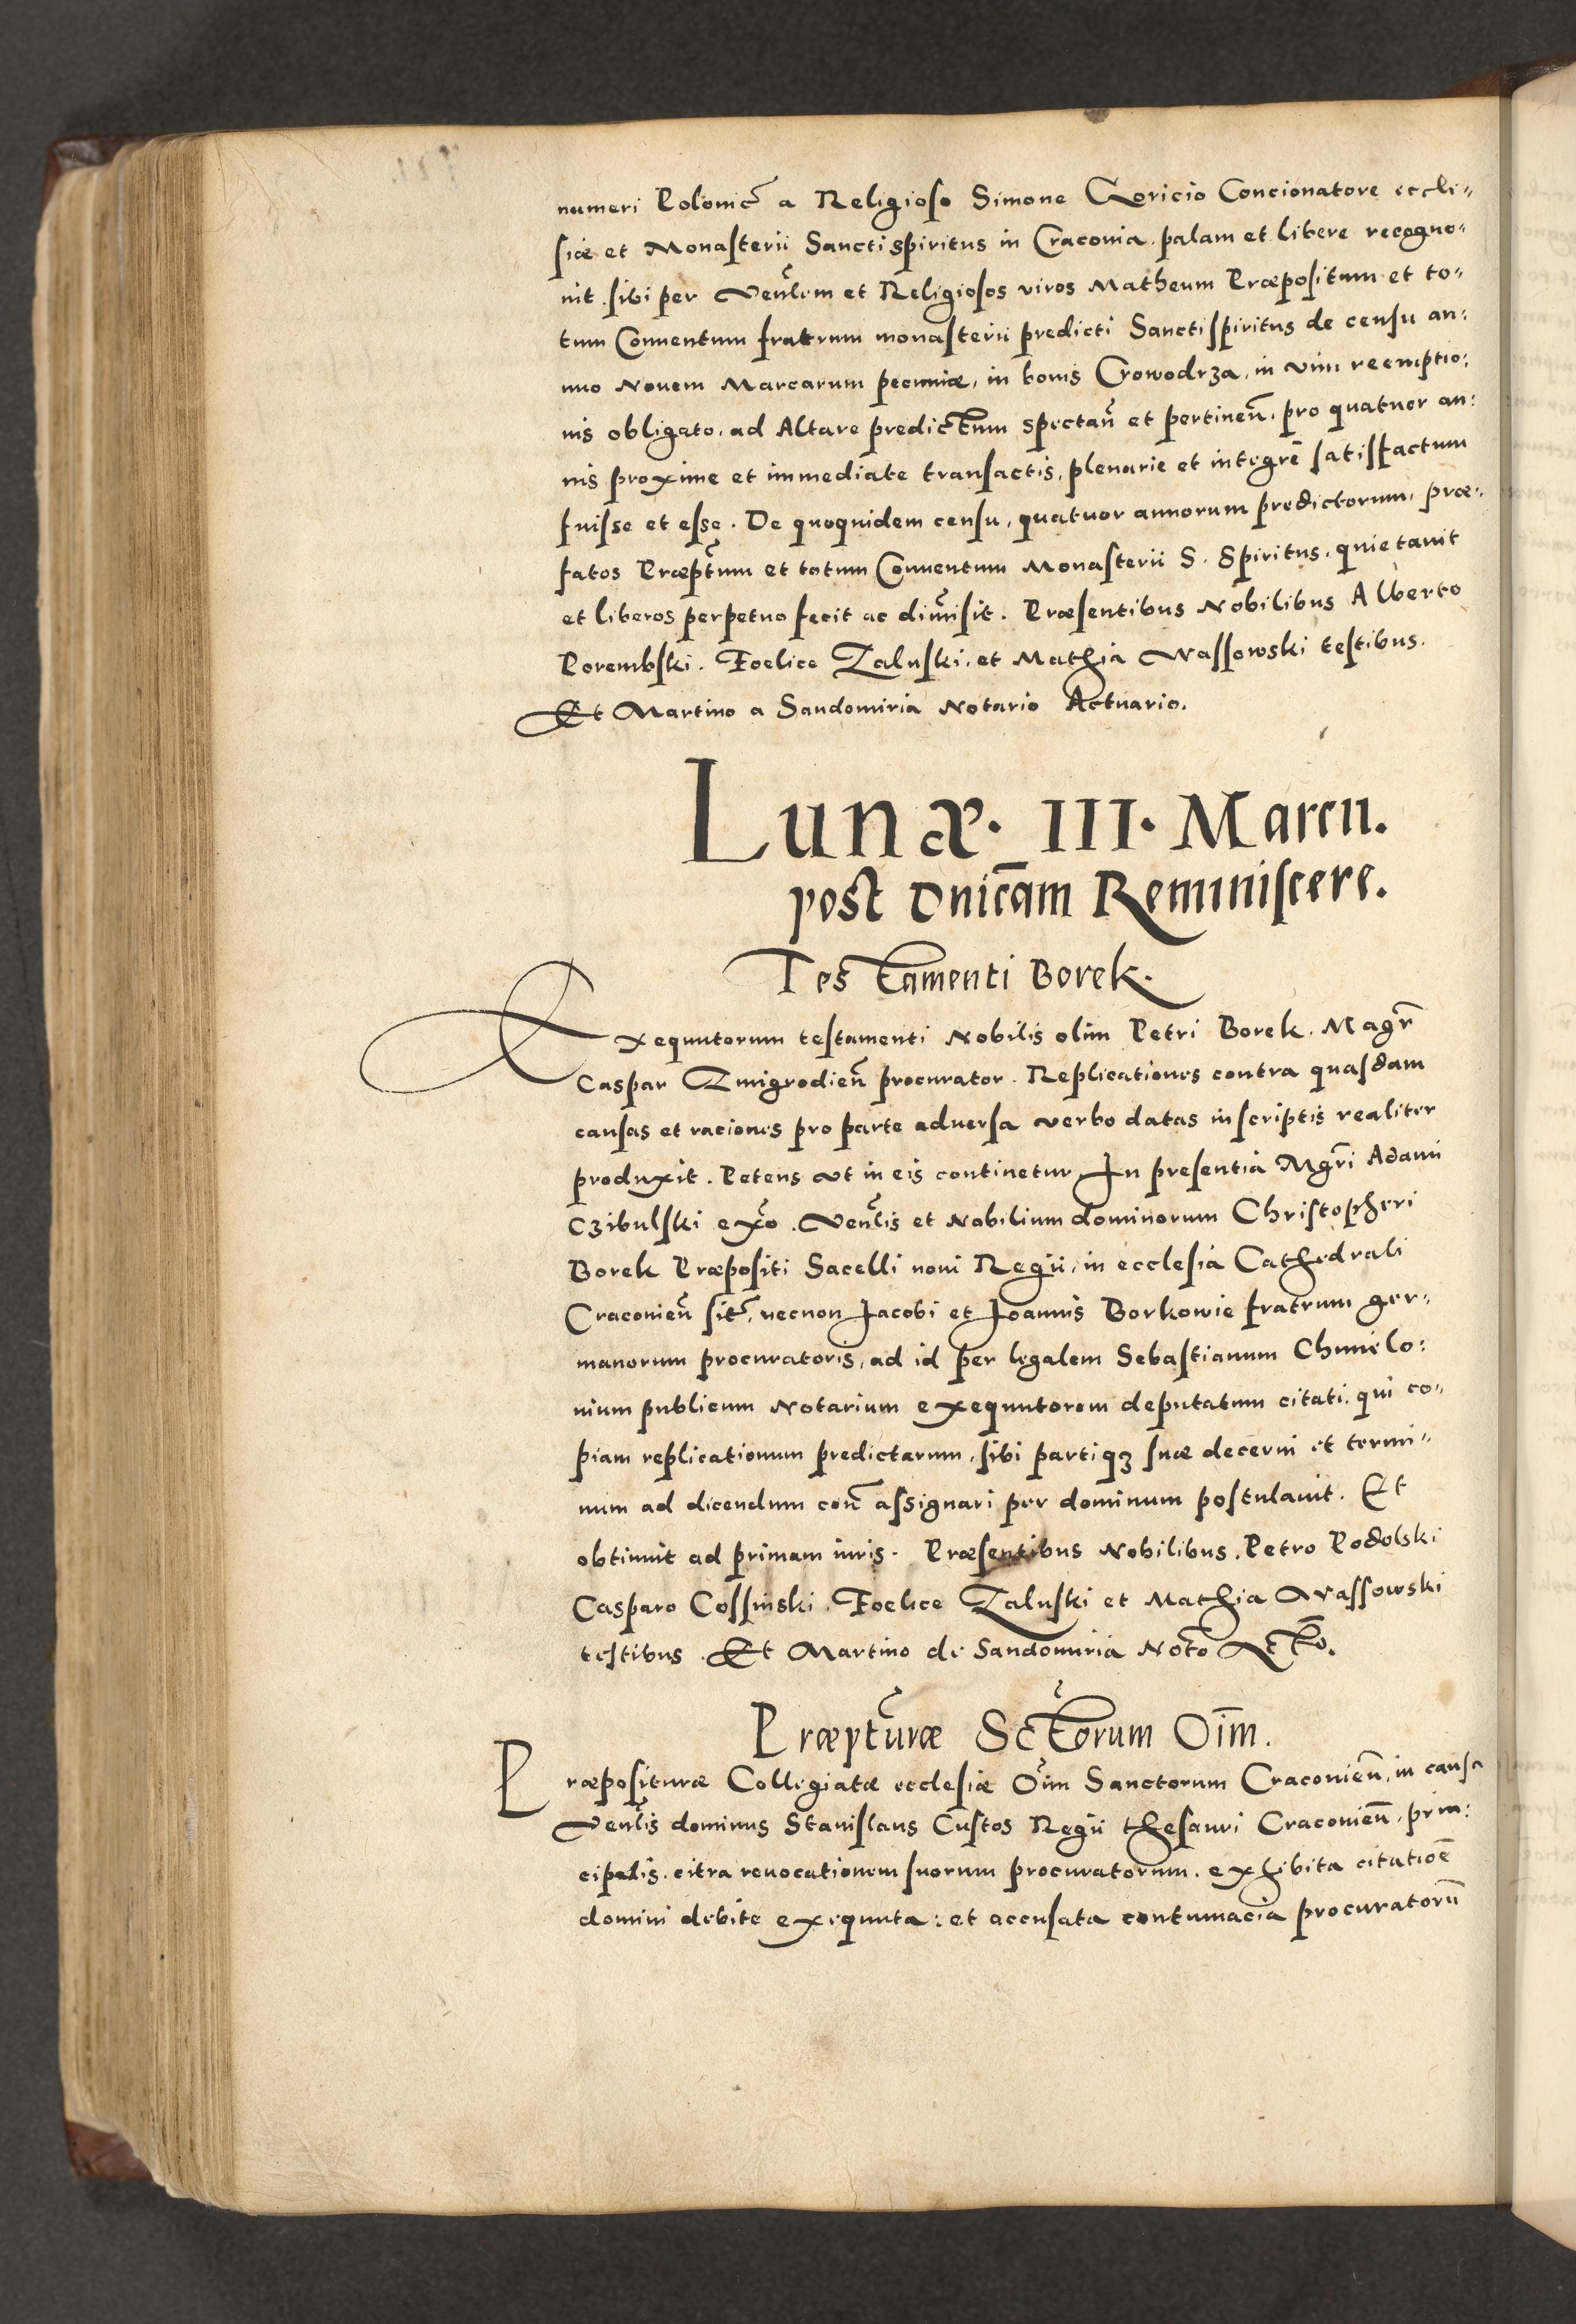 numeri Polonic̄ a Religioso Simone Goricio Concionatore eccle-
siæ et Monasterii Sanctispiritus in Craconia. palam et libere recogno-
uit. sibi per Venlem et Religiosos viros Matheum Præpositum et to-
tum Conuentum fratrum monasterii predicti Sanctispiritus de censu an:
nuo Nouem Marcarum pecuniæ, in bonis Crowodrza, in vim reemptio:
nis obligato, ad Altare predictum spectan̄ et pertinen̄, pro quatuor an:
nis proxime et immediate transactis, plenarie et integre satisfactum
fuisse et esse. De quoquidem censu, quatuor annorum predictorum, præ-
fatos Præptum et totum Conuentum Monasterii S. Spiritus, quietauit
et liberos perpetuo fecit ac dimisit. Præsentibus Nobilibus Alberto
Porembski. Foelice Zaluski, et Mathia Wassowski testibus.
Et Martino a Sandomiria Notario Actuario.
Lunæ. III. Marcii.
post Dnicam Reminiscere.
Testamenti Borek.
Exequutorum testamenti Nobilis olim Petri Borek. Magr
Caspar Zmigrodien̄ procurator. Replicationes contra quasdam
causas et raciones pro parte aduersa verbo datas in scriptis realiter
produxit. Petens vt in eis continetur, In presentia Mgri Adami
Czibulski ex̄o. Venlis et Nobilium dominorum Christopheri
Borek Præpositi Sacelli noui Regii, in ecclesia Cathedrali
Craconien̄ sit̄, necnon Jacobi et Joannis Borkowie fratrum ger-
manorum procuratoris, ad id per legalem Sebastianum Chmielo:
uium publicum Notarium exequutorem deputatum citati. qui co-
piam replicationum predictarum, sibi partiqz suæ decerni et termi-
num ad dicendum con̄ assignari per dominum postulauit. Et
obtinuit ad primam iuris. Præsentibus Nobilibus, Petro Podolski
Casparo Cossinski. Foelice Zaluski et Mathia Wassowski
testibus. Et Martino de Sandomiria Noto Acto.
Præpturæ Sctorum Oīm.
Præpositurae Collegiatæ ecclesiæ Oīm Sanctorum Craconien̄, in causa
Venlis dominus Stanislaus Custos Regii thesauri Craconien̄, prin:
cipalis, citra reuocationem suorum procuratorum. exhibita citatioē
domini debite exequuta: et accusata contumacia procuratorū